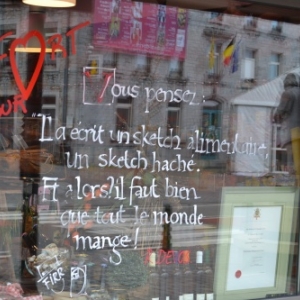 FORT
Vous pensez :
"Il a écrit un sketch alimentaire,
un sketch haché.
Et alors? il faut bien
que tout le monde
mange!